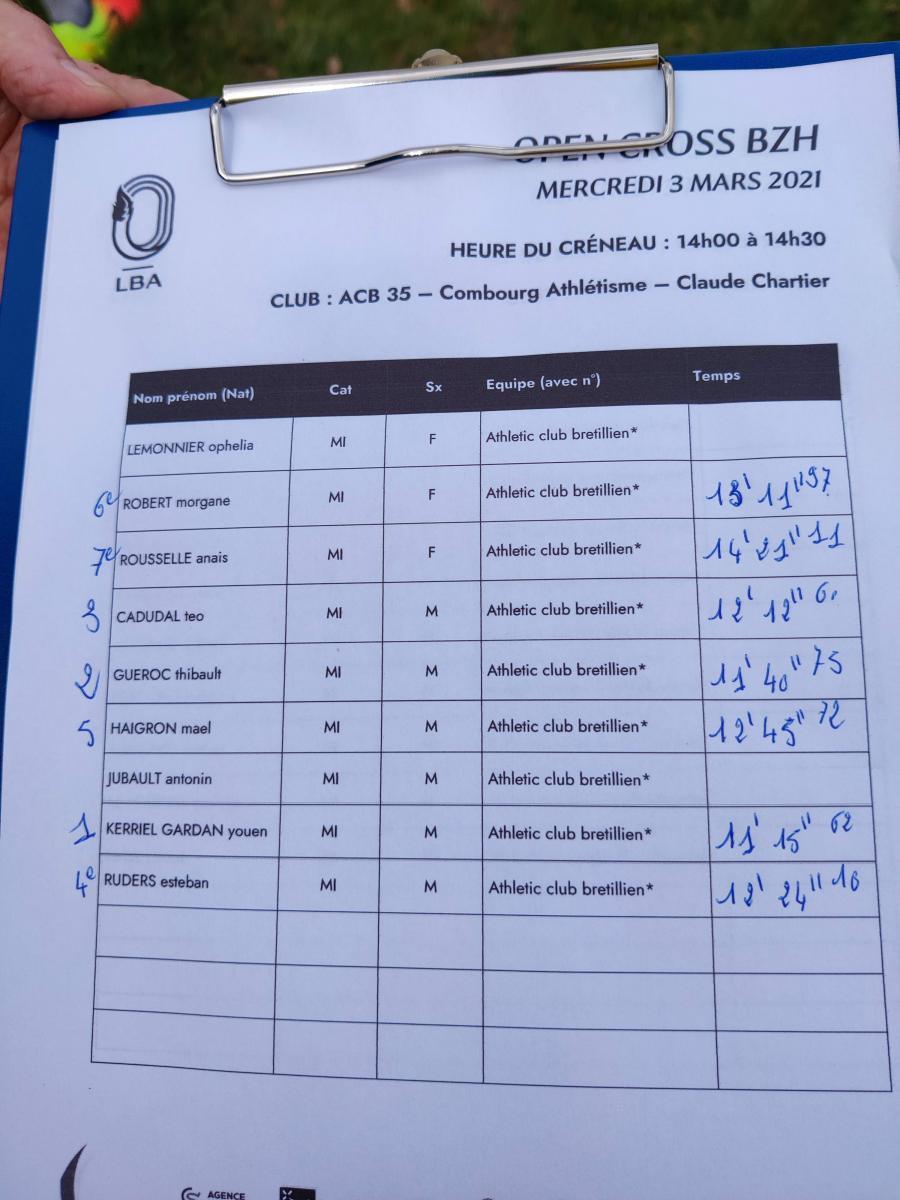 OPEN CROSS BZH
MERCREDI 3 MARS 2021
LBA
HEURE DU CRÉNEAU : 14h00 à 14h30
CLUB : ACB 35 – Combourg Athlétisme – Claude Chartier
Nom prénom (Nat) Cat Sx Equipe (avec n°) Temps
LEMONNIER ophelia MI F Athletic club bretillien*
6e ROBERT morgane MI F Athletic club bretillien* 13' 11" 97
7e ROUSSELLE anais MI F Athletic club bretillien* 14' 21" 11
3 CADUDAL teo MI M Athletic club bretillien* 12' 12"
2 GUEROC thibault MI M Athletic club bretillien* 11' 40" 75
5 HAIGRON mael MI M Athletic club bretillien* 12' 45" 72
JUBAULT antonin MI M Athletic club bretillien*
1 KERRIEL GARDAN youen MI M Athletic club bretillien* 11' 15" 62
4e RUDERS esteban MI M Athletic club bretillien* 12' 24" 16
AGENCE